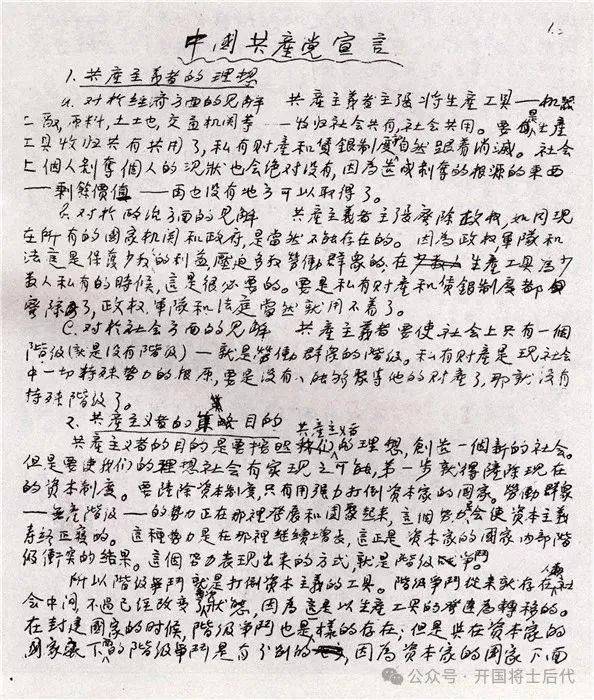 1.
中國共產党宣言
1. 共產主義者的理想
a. 对於經济方面的見解 共產主義者主張將生產工具——机器
工厰,原料,土土也,交通机関等——收归社会共有,社会共用。要是生產
工具收归共有共用了,私有財產和賃銀制度自然跟着消滅。社会
上個人剝奪個人的況狀也会绝对没有,因為造成剝奪的根源的東西
——剩餘價值——再也没有地方可以取得了。
b. 对於政治方面的見解 共產主義者主張廢除政权,如同現
在所有的國家机関和政府,是當然不能存在的。因為政权軍隊和
法庭是保護少数人的利益,壓迫多数勞働群衆的;在生產工具為少
数人私有的時候,這是很必要的。要是私有財產和賃銀制度都
廢除了,政权、軍隊和法庭當然就用不着了。
C. 对於社会方面的見解 共產主義者要使社会上只有一個
階级(就是没有階级)——就是勞働群衆的階级。私有財產是現社会
中一切特殊势力的根原,要是没有人能夠聚集他的財產了,那就没有
特殊階级了。
2. 共產主义者的目的
共產主義者的目的是要按照共產主义者的理想,創造一個新的社会。
但是要使我们的理想社会有实現之可能,第一步就得鏟除現在
的資本制度。要鏟除資本制度,只有用强力打倒資本家的國家。勞働群衆
——無產階级——的势力正在那裡發展和團聚起來,這個势力会使資本主義
寿終正寢的。這種势力是在那裡継續增長,這正是資本家的國家内部階
级衝突的結果。這個势力表現出來的方式,就是階级爭鬥。
所以階级爭鬥就是打倒資本主義的工具。階级爭鬥從來就存在人類社
会中间,不過已經改变狀態,因為這是以生產工具的發達為轉移的。
在封建國家的時候,階级爭鬥也是一樣的存在;但是與在資本家的
國家裏的階级爭鬥是有分别的,因為資本家的國家下面
公众号·开国将士后代